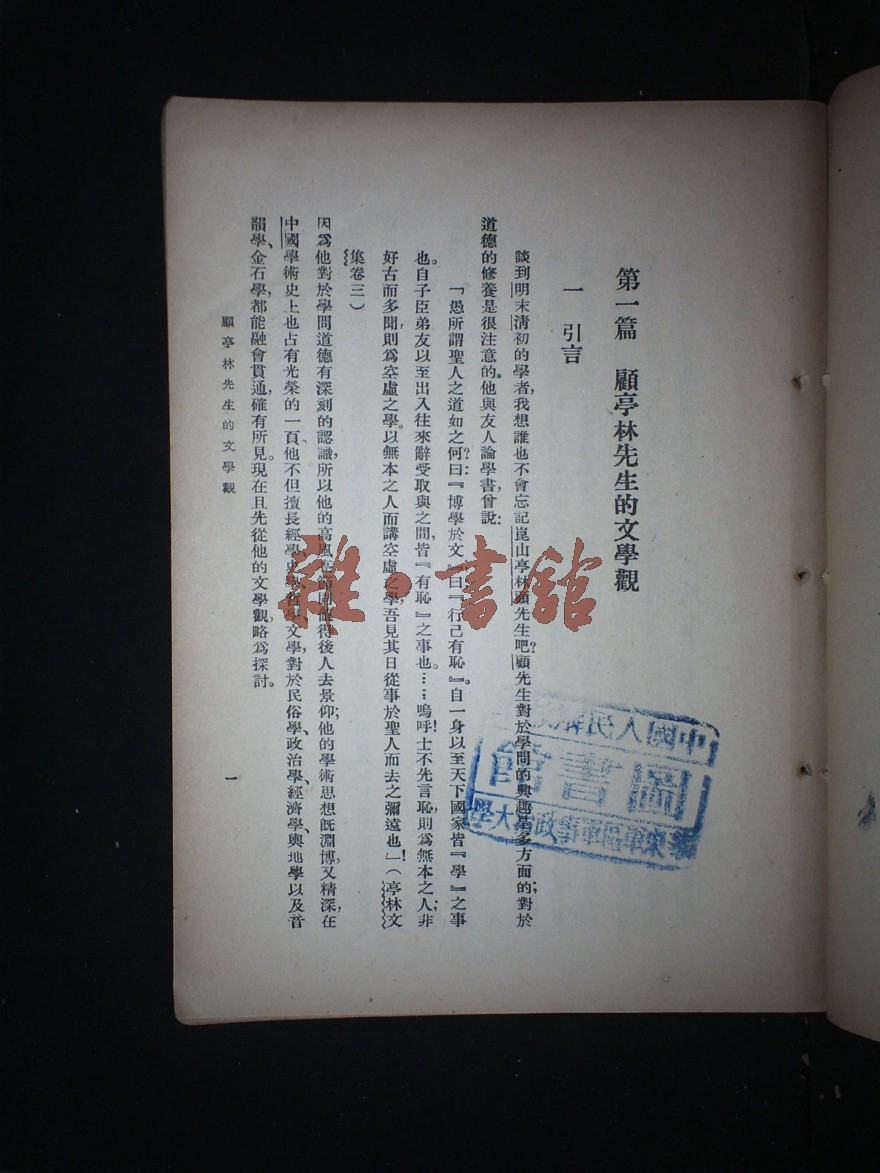 第一篇　顧亭林先生的文學觀
一　引言
談到明末清初的學者,我想誰也不會忘記崑山亭林顧先生吧?顧先生對於學問的興趣是多方面的;對於
道德的修養是很注意的。他與友人論學書曾說:
「愚所謂聖人之道如之何?曰:『博學於文』曰『行己有恥。』自一身以至天下國家皆『學』之事
也。自子臣弟友以至出入往來辭受取與之間,皆『有恥』之事也。……嗚呼!士不先言恥,則爲無本之人;非
好古而多聞,則爲空虛之學。以無本之人而講空虛之學,吾見其日從事於聖人而去之彌遠也!」(亭林文
集卷三)
因爲他對於學問道德有深刻的認識,所以他的高風亮節固値得後人去景仰;他的學術思想旣淵博,又精深,在
中國學術史上也占有光榮的一頁。他不但擅長經學、史學、哲學、文學,對於民俗學、政治學、經濟學、輿地學以及音
韻學、金石學,都能融會貫通,確有所見。現在且先從他的文學觀,略爲探討。
顧亭林先生的文學觀
一
雜·書館
中國人民解放軍
圖書館
東軍區軍事政治大學